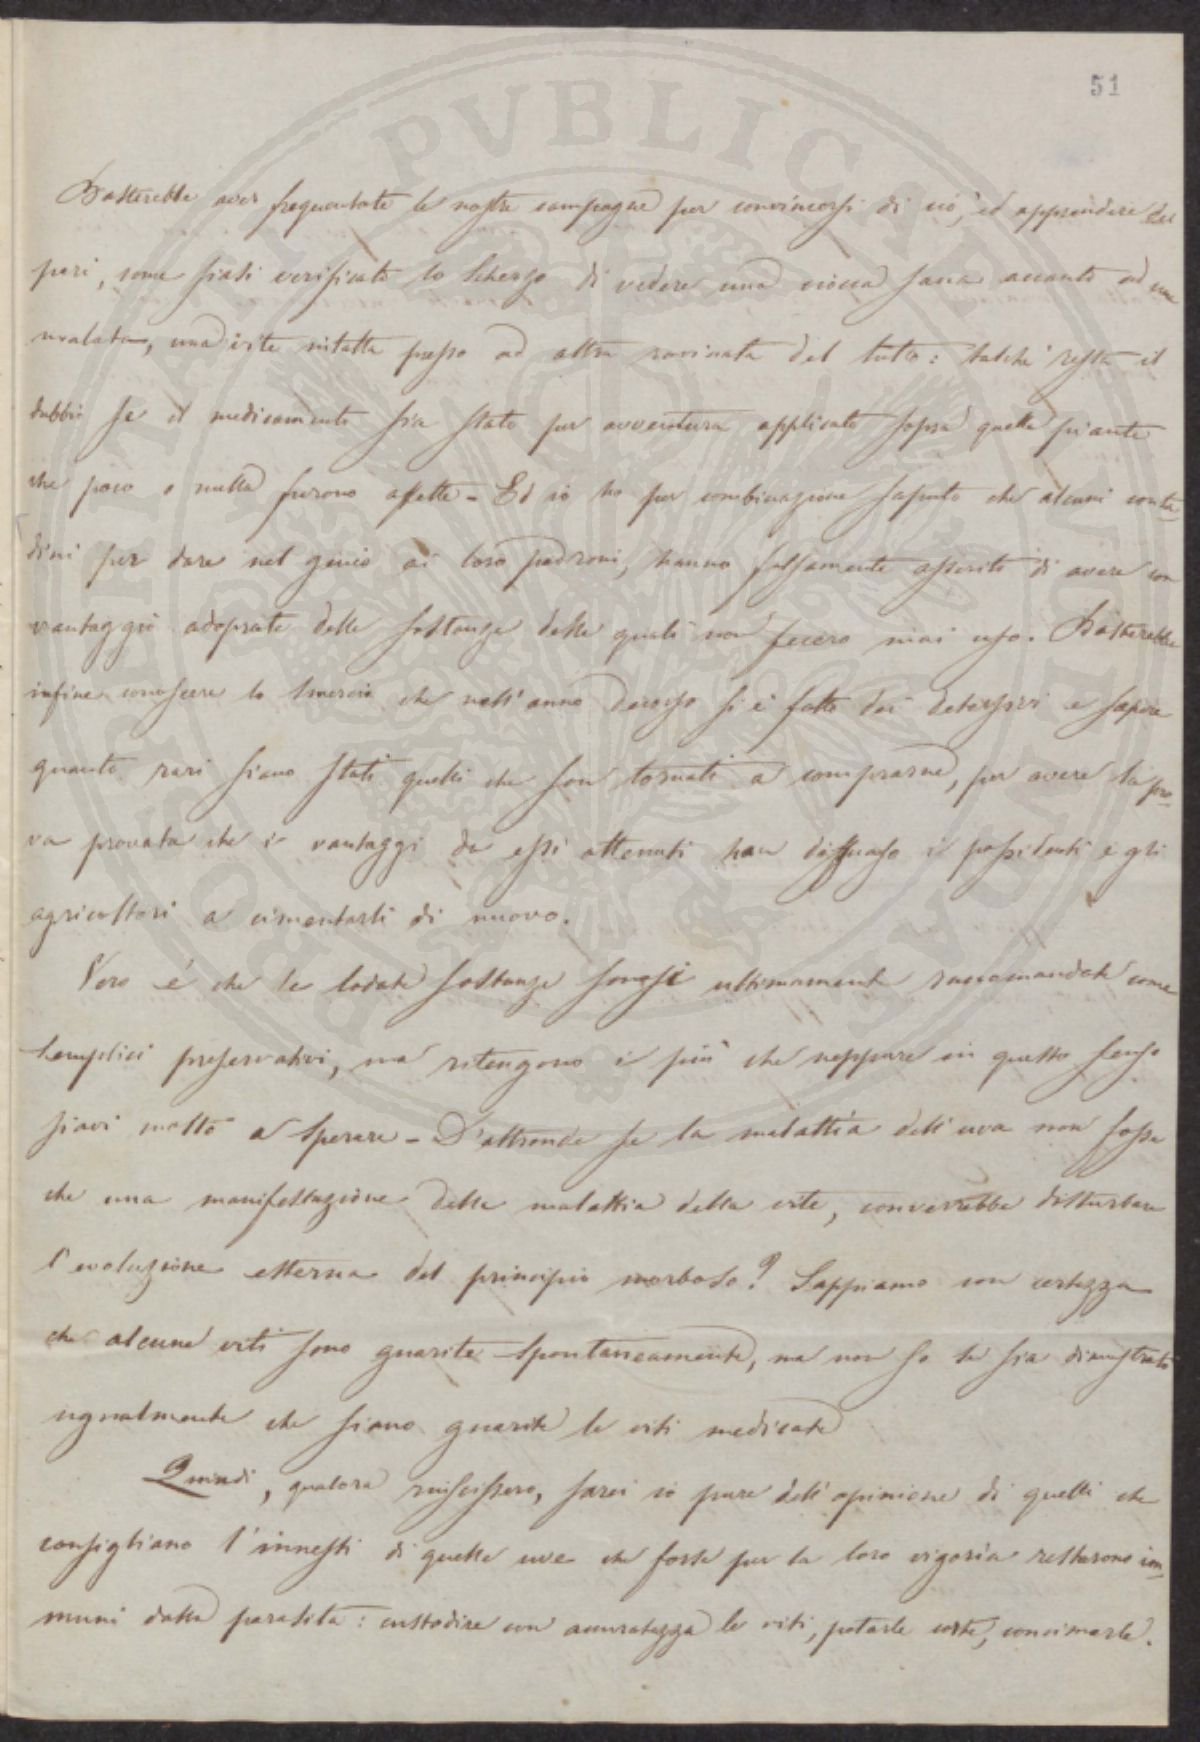 51
Basterebbe aver frequentate le nostre campagne per convincersi di ciò, ed apprendere del
pari, come siasi verificato lo scherzo di vedere una ciocca sana accanto ad una
malata, una vite intatta presso ad altra rovinata del tutto: talchè resta il
dubbio se il medicamento sia stato per avventura applicato sopra quelle piante
che poco o nulla furono affette - Ed io ho per combinazione saputo che alcuni conta-
dini per dare nel genio ai loro padroni, hanno falsamente asserito di avere con
vantaggio adoprate delle sostanze delle quali non fecero mai uso. Basterebbe
infine conoscere lo smercio che nell'anno decorso si è fatto dei detersivi e sapere
quanto rari siano stati quelli che son tornati a comprarne, per avere la pro-
va provata che i vantaggi da essi ottenuti han dissuaso i possidenti e gli
agricoltori a cimentarli di nuovo.
Vero è che le lodate sostanze sonosi ultimamente raccomandate come
semplici preservativi, ma ritengono i più che neppure in questo senso
siavi molto a sperare - D'altronde se la malattia dell'uva non fosse
che una manifestazione della malattia della vite, converrebbe disturbare
l'evoluzione esterna del principio morboso? Sappiamo con certezza
che alcune viti sono guarite spontaneamente, ma non so se sia dimostrato
ugualmente che siano guarite le viti medicate
Quindi, qualora riuscissero, sarei io pure dell'opinione di quelli che
consigliano l'innesti di quelle uve che forse per la loro vigoria restarono im-
muni dalla parasita: custodire con accuratezza le viti, potarle corte, concimarle.
PVBLICAE